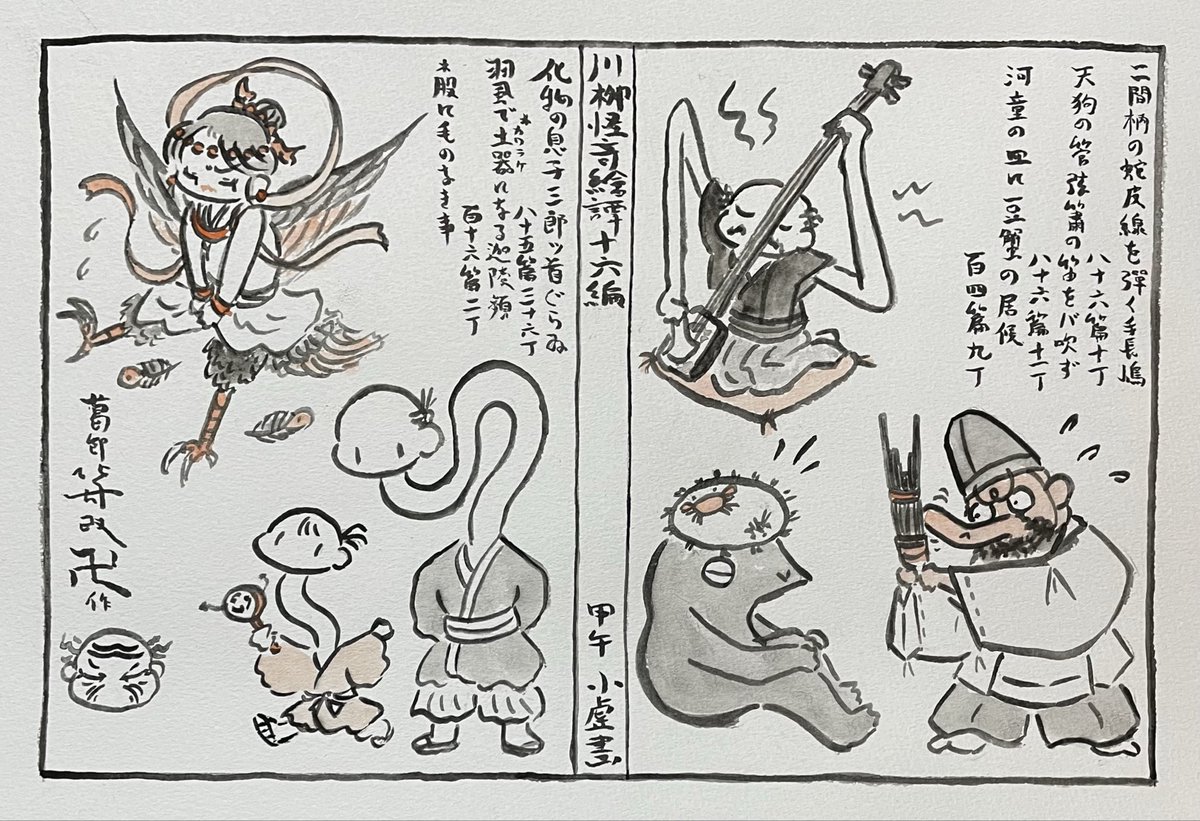 二間柄の蛇皮線を彈く手長嶋
八十六篇十丁
天狗の管弦簫の笛をバ吹ず
八十六篇十一丁
河童の皿に豆蟹の居候
百四篇九丁
川柳怪奇繪譚十六編
甲午 小虚畫
化物の息子三郎ッ首ぐらゐ
八十五篇三十六丁
羽衣で土器になる迦陵頻
*カワラケ
百十六篇二丁
*股に毛のなき事
葛卽
改
卍
作